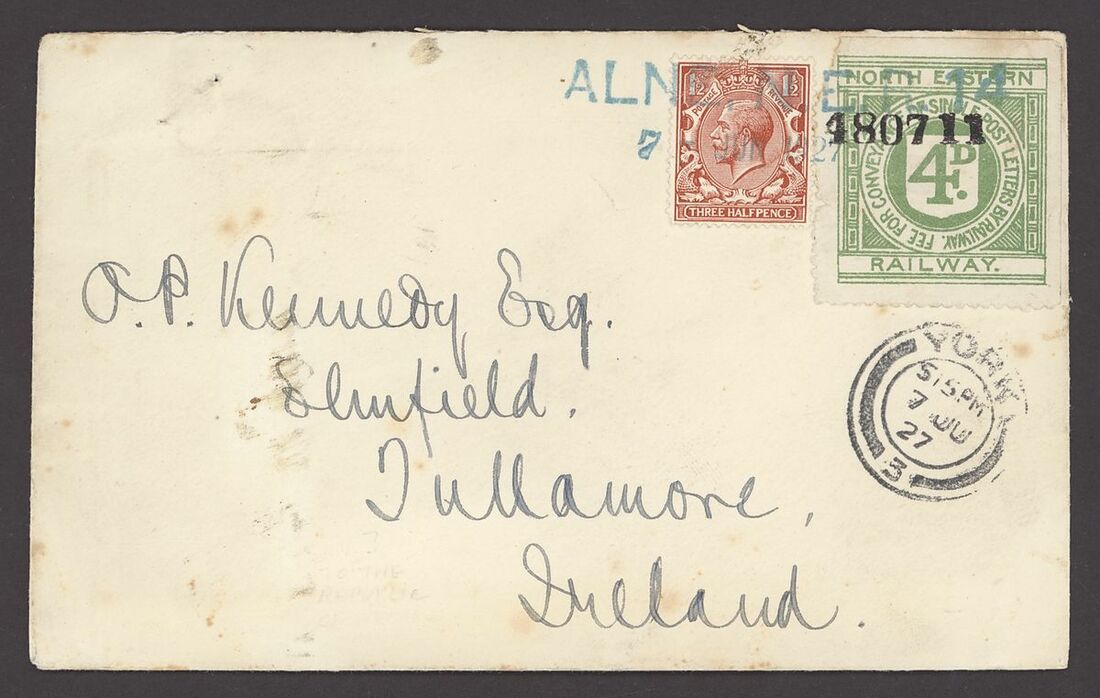 ALNE N.E.R. 14
7 JUN 27
1½ 1½
POSTAGE REVENUE
THREE HALFPENCE
NORTH EASTERN
180711
FEE FOR CONVEYANCE OF SINGLE POST LETTERS BY RAILWAY.
4D.
RAILWAY.
O.P. Kennedy Esq.
Elmfield.
Tullamore,
Ireland.
YORK
5.15PM
7 JU
27
3
TO THE